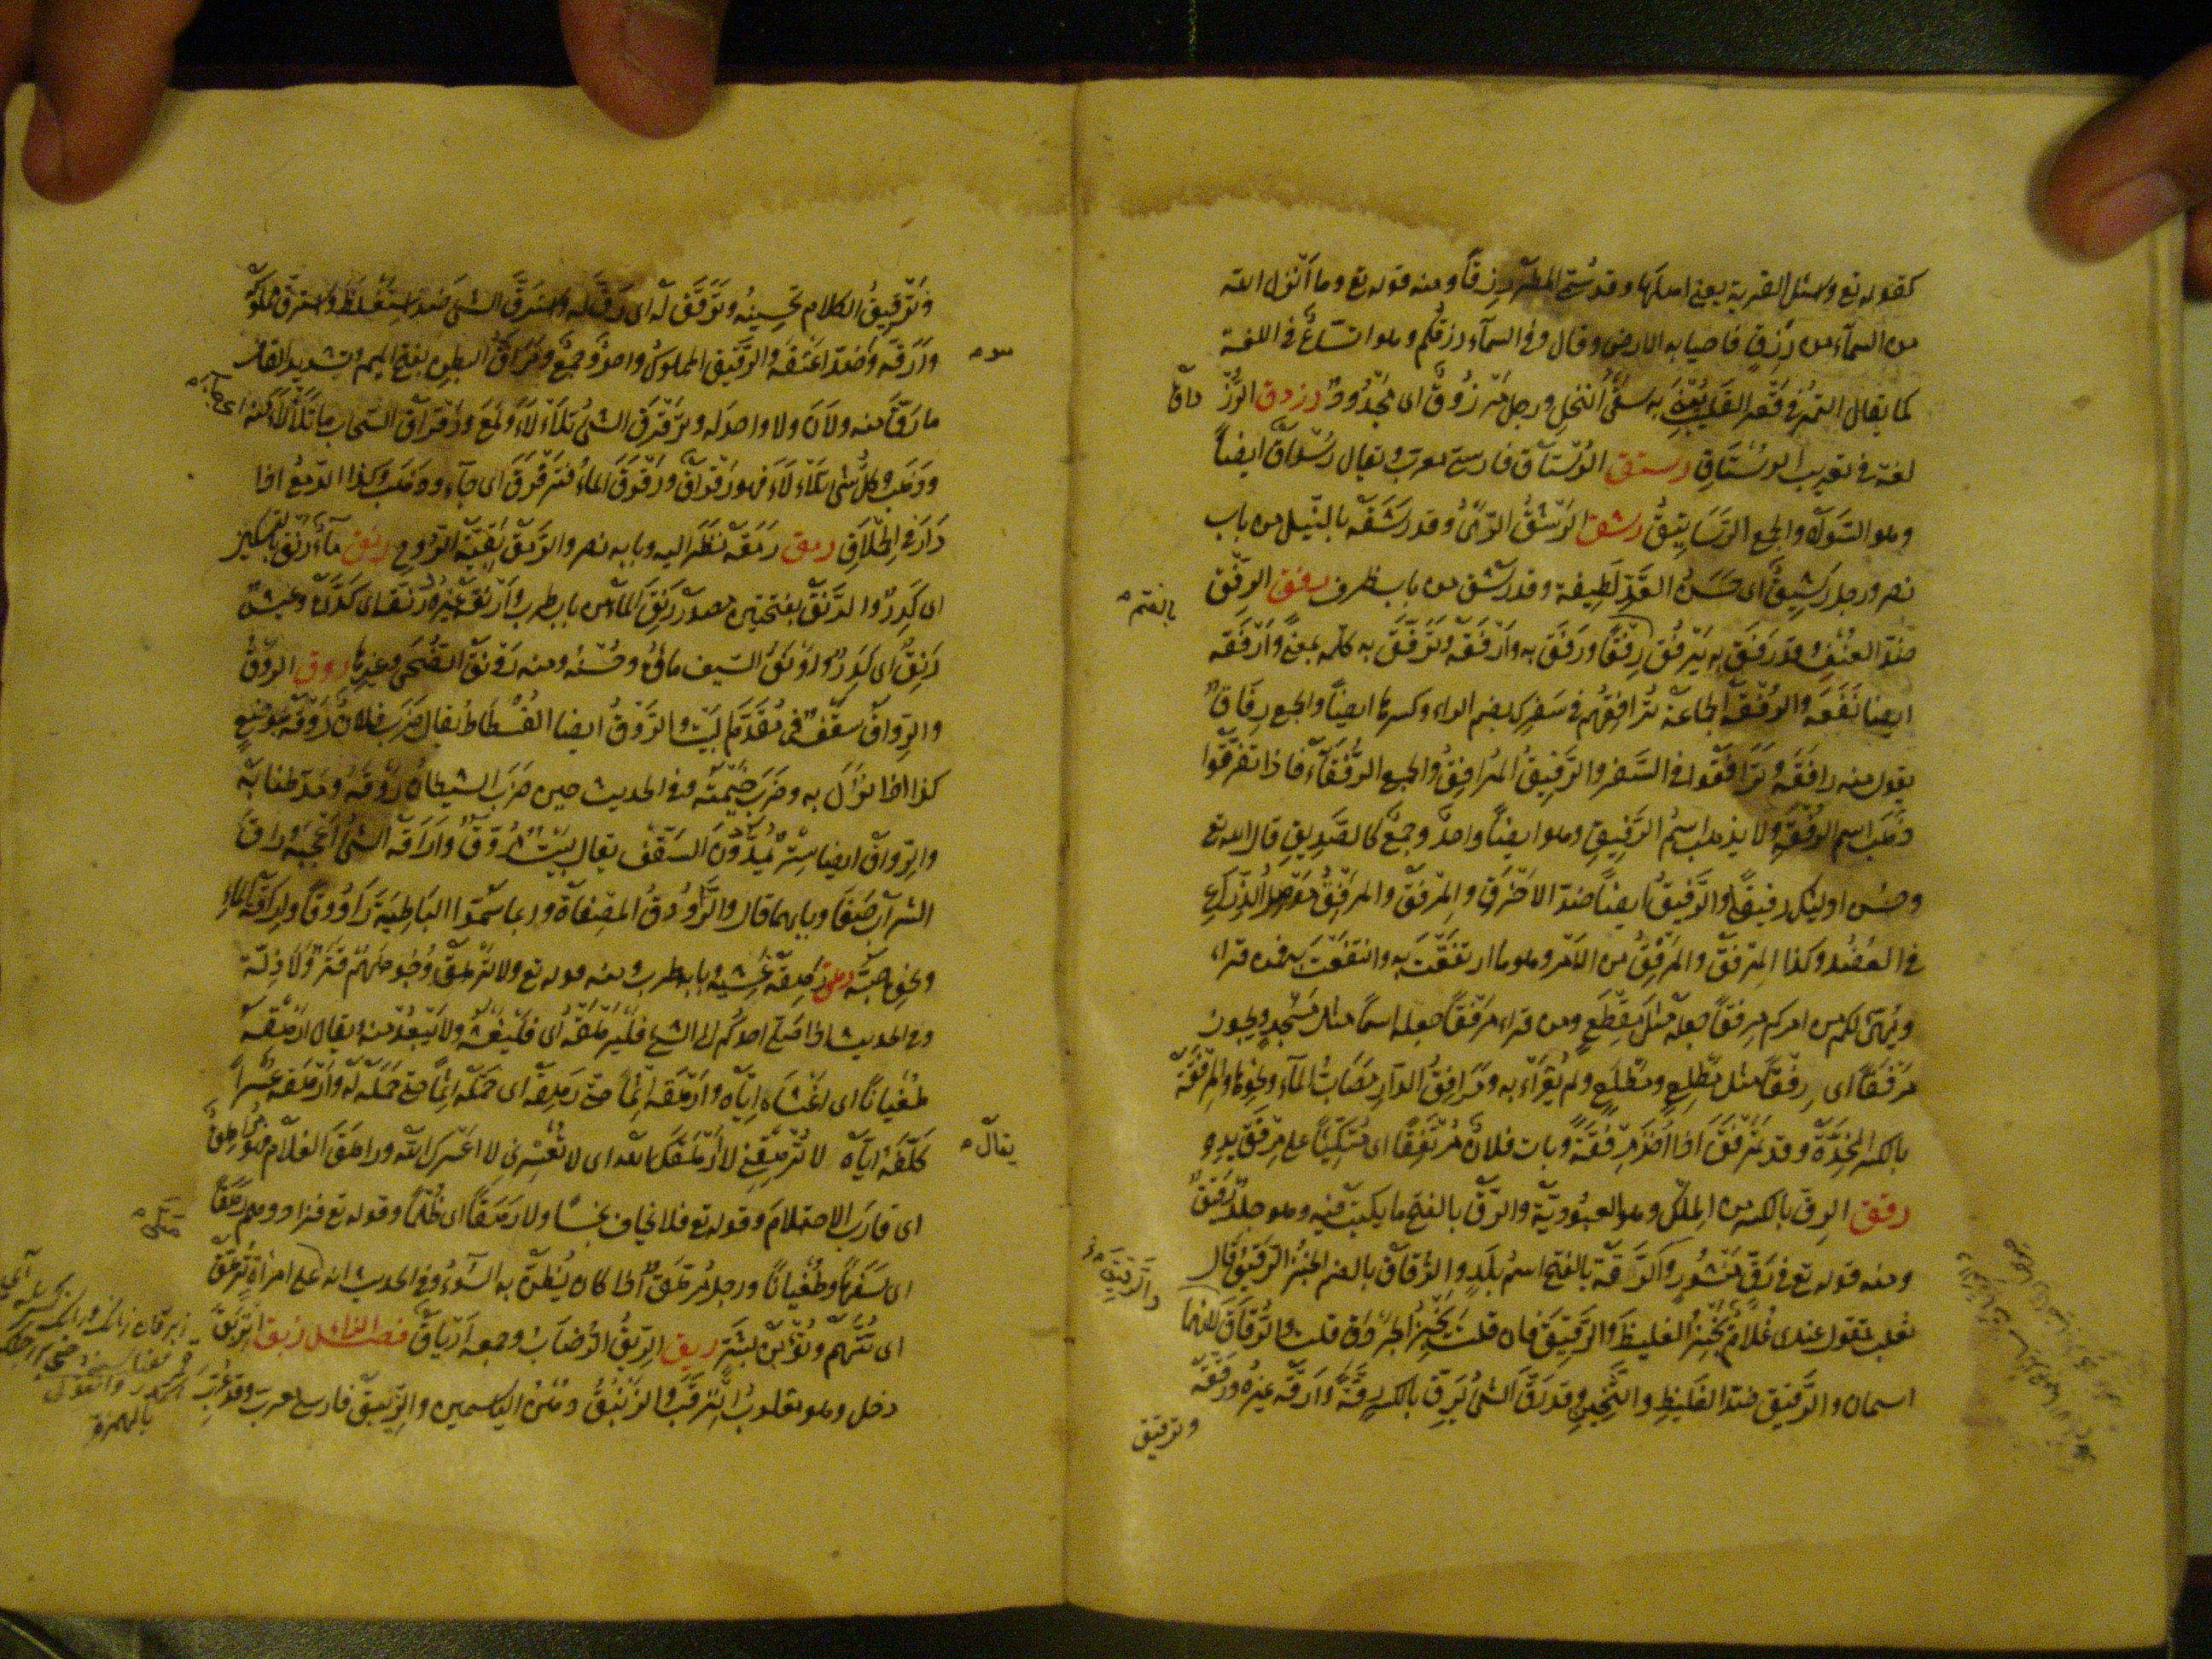 كقوله تع واسئل القرية يعنى اهلها وقد سمى المطر رزقا ومنه قوله تع وما انزل الله
من السمآء من رزق فاحيا به الارض وقال وفى السمآء رزقكم وهو اتساع فى اللغة
كما يقال التمر فى قعر القليب يعنى به سقى النخل ورجل مرزوق اى مجدود رزدق الرزداق
لغة فى تعريب الرستاق رستق الرستاق فارسى معرب ويقال رسداق ايضا
وهو السواد والجمع الرساتيق رشق الرشق الرمى وقد رشقه بالنبل من باب
نصر ورجل رشيق اى حسن القد لطيفه وقد رشق من باب ظرف رفق الرفق
ضد العنف وقد رفق به يرفق رفقا ورفق به وارفقه وترفق به كله بمعنى وارفقه
ايضا نفعه والرفقة الجماعة ترافقهم فى سفرك بضم الراء وكسرها ايضا والجمع رفاق
يقول منه رافقه وترافقوا فى السفر والرفيق المرافق والجمع الرفقآء فاذا تفرقوا
ذهب اسم الرفقة ولا يذهب اسم الرفيق وهو ايضا واحد وجمع كالصديق قال الله تع
وحسن اولئك رفيقا والرفيق ايضا ضد الاخرق والمرفق والمرفق موصل الذراع
فى العضد وكذا المرفق والمرفق من الامر وهو ما ارتفقت به وانتفعت به فمن قراء
ويهيئ لكم من امركم مرفقا جعله مثل مقطع ومن قراء مرفقا جعله اسما مثل مسجد ويجوز
مرفقا اى رفقا مثل مطلع ومطلع ولم يقراء به ومرافق الدار مصاب المآء ونحوها والمرفقة
بالكسر المخدة وقد تمرفق اذا اخذ مرفقة وبات فلان مرتفقا اى متكئا على مرفق يده
رقق الرق بالكسر من الملك وهو العبودية والرق بالفتح ما يكتب فيه وهو جلد رقيق
ومنه قوله تع فى رق منشور والرقة بالفتح اسم بلد والرقاق بالضم الخبز الرقيق قال
ثعلب تقول عندى غلام يخبز الغليظ والرقيق فان قلت يخبز الجردق قلت والرقاق لانهما
اسمان والرقيق ضد الغليظ والثخين وقد رق الشئ يرق بالكسر رقة وارقه غيره ورققه
وترقيق
بالضم
والرقيق
وترقيق الكلام تحسينه وترقق له اى رق له واسترق الشئ ضد استغلظ واسترق مملوكه
وارقه وضده اعتقه والرقيق المملوك واحد وجمع ومراق البطن بفتح الميم وتشديد القاف
ما رق منه ولان ولا واحد له وترقرق الشئ تلألأ ولمع ورقراق السحاب ما تلألأ منه اى جآء
وذهب وكل شئ تلألأ فهو رقراق ورقرق المآء فترقرق اى جآء وذهب وكذا الدمع اذا
دار فى الحملاق رمق رمقه نظر اليه وبابه نصر والرمق بقية الروح رنق مآء رنق بالتسكين
اى كدر والرنق بفتحتين مصدر رنق المآء من باب طرب وارنقه غيره ورنقه اى كدره وعيش
رنق اى كدر ورونق السيف ماؤه وحسنه ومنه رونق الضحى وغيرها روق الروق
والرواق سقف فى مقدم البيت والروق ايضا الفسطاط يقال ضرب فلان روقه بموضع
كذا اذا نزل به وضرب خيمته وفى الحديث حين ضرب الشيطان روقه ومد طنابه
والرواق ايضا ستر يمد دون السقف يقال بيت مروق واراقه الشئ اعجبه وراق
الشراب صفا وبابهما قال والراووق المصفاة وربما سموا الباطية راووقا واراقة المآء
ونحوه صبه رهق رهقه غشيه وبابه طرب ومنه قوله تع ولا ترهق وجوههم قتر ولا ذلة
وفى الحديث اذا صلى احدكم الى الشئ فليرهقه اى فليغشه ولا يبعد منه ويقال ارهقه
طغيانا اى اغشاه اياه وارهقه اثما حتى رهقه اى حمله اثما حتى حمله له وارهقه عسرا
كلفه اياه لا ترهقنى لا ارهقك الله اى لا تعسرنى لا اعسرك الله وراهق الغلام فهو مراهق
اى قارب الاحتلام وقوله تع فلا يخاف بخسا ولا رهقا اى ظلما وقوله تع فزادوهم رهقا
اى سفها وطغيانا ورجل مرهق اذا كان يظن به السوء وفى الحديث انه صلى على امراة ترهق
اى تتهم وتؤبن بشر ريق الريق الرضاب وجمعه ارياق فصل الزاى زبق انزبق
دخل وهو مقلوب انزقب والزنبق دهن الياسمين والزيبق فارسى معرب وقد عرب
يقال
بالهمزة